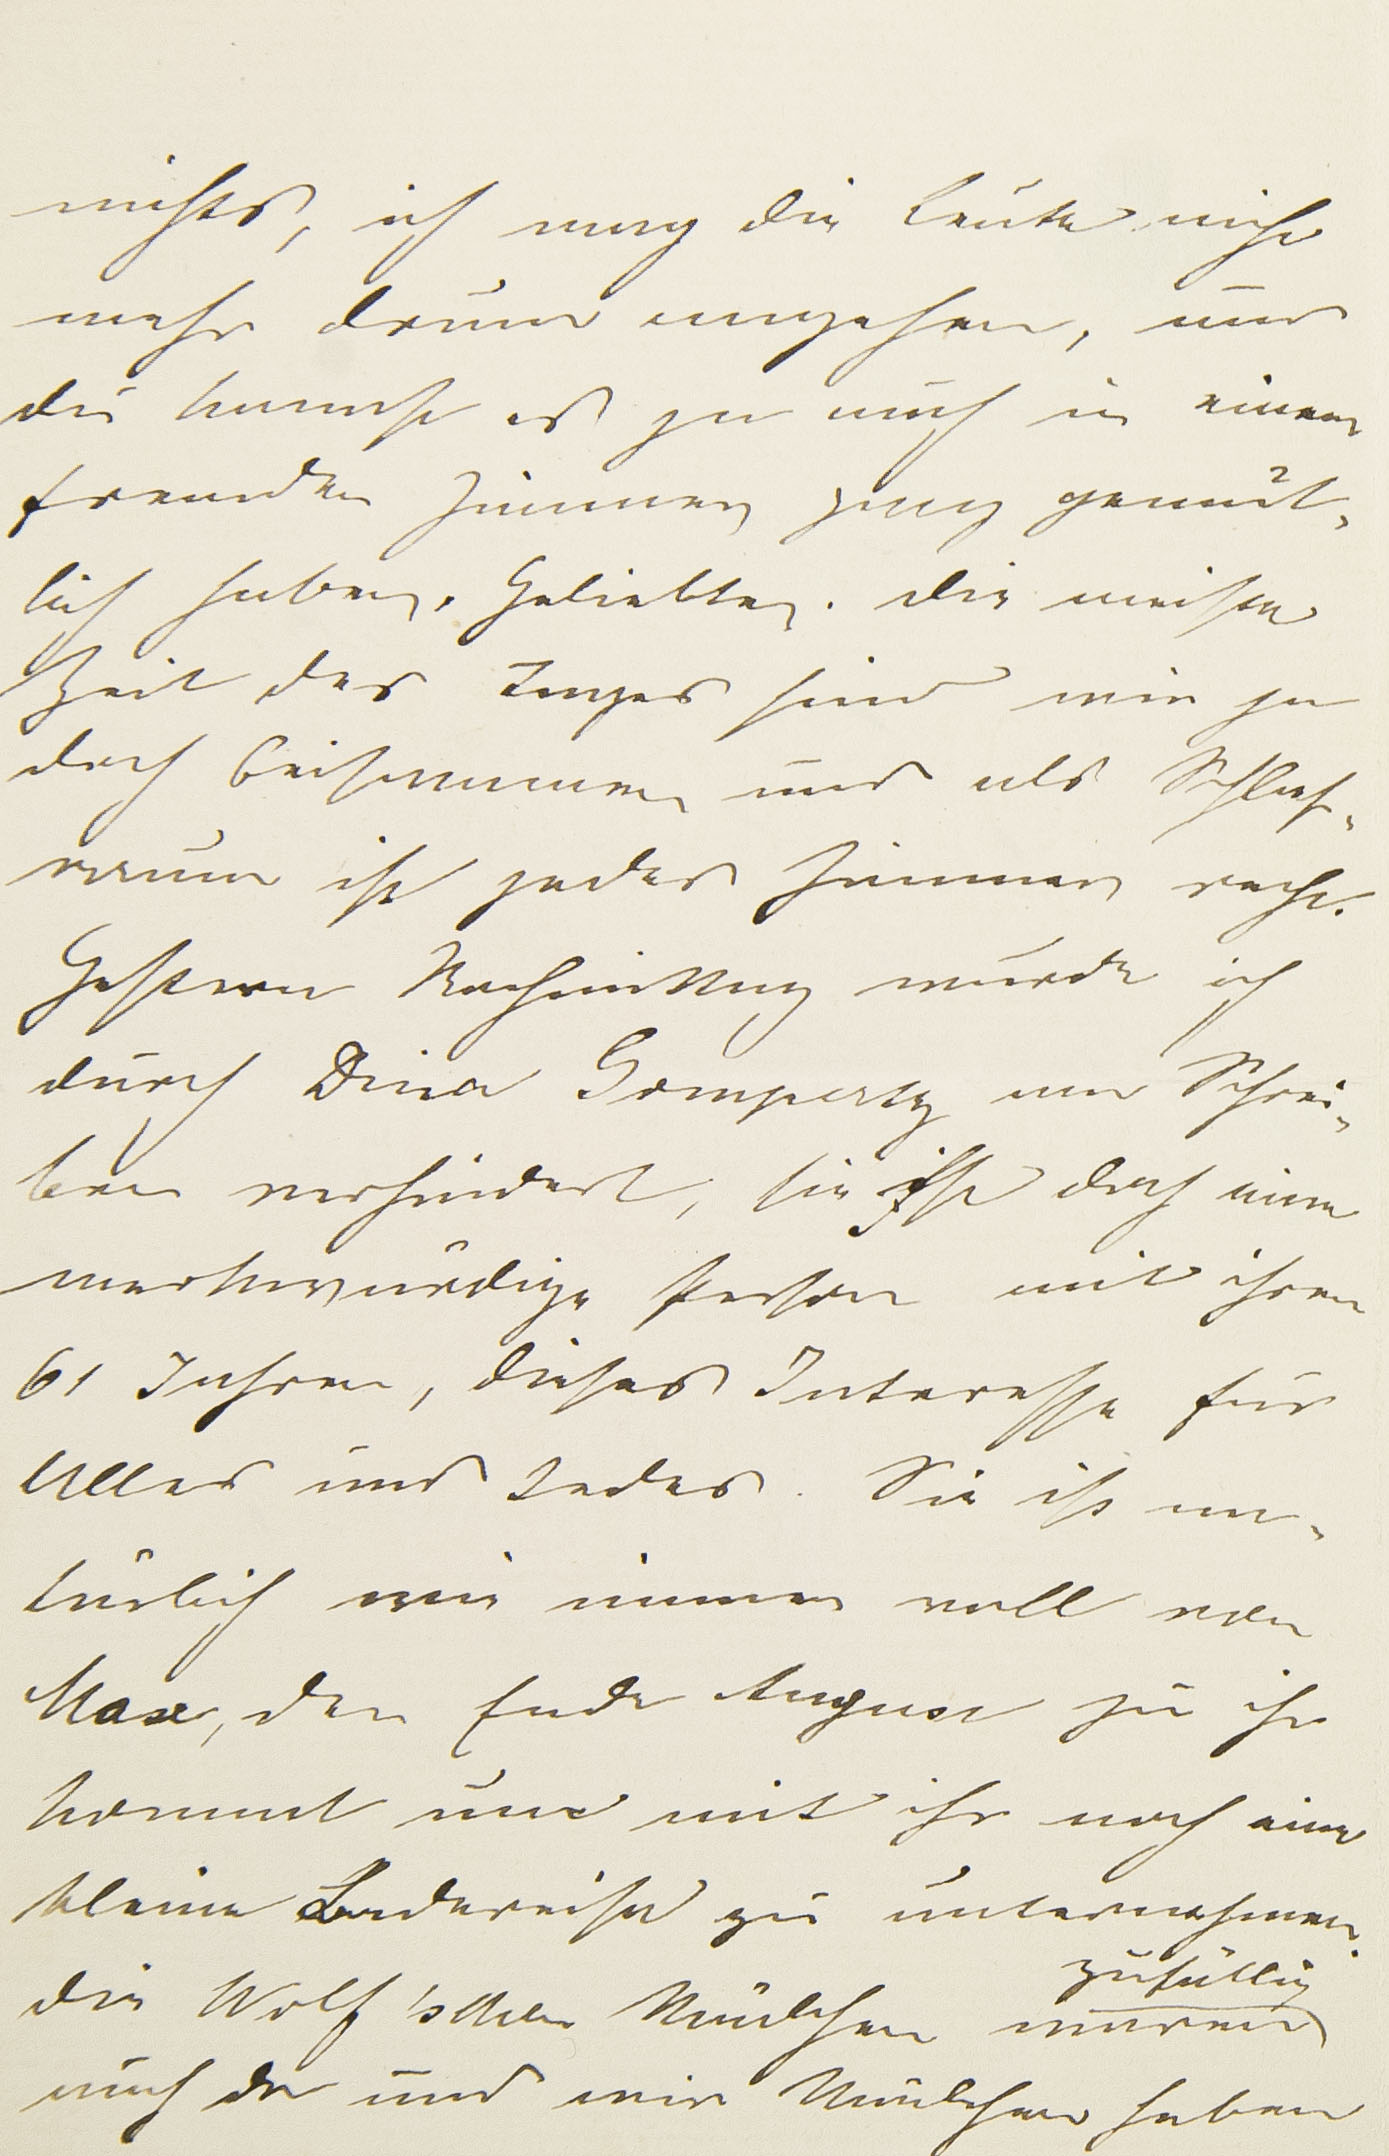 nichts, ich mag die Leute nicht
mehr drum angehen, und
du kannst es ja auch in einem
fremden Zimmer ganz gemüt-
lich haben, Geliebter. Die meiste
Zeit des Tages sind wir ja
doch beisammen und als Schlaf-
raum ist jedes Zimmer recht.
Gestern Nachmittag wurde ich
durch Dina Gompertz am Schrei-
ben verhindert, sie ist doch eine
merkwürdige Person mit ihren
61 Jahren, dieses Interesse für
Alles und Jedes. Sie ist na-
türlich wie immer voll von
Max, der Ende August zu ihr
kommt um mit ihr noch eine
kleine Badereise zu unternehmen.
Die Wolf'schen Mädchen waren zufällig
auch da und wir Mädchen haben